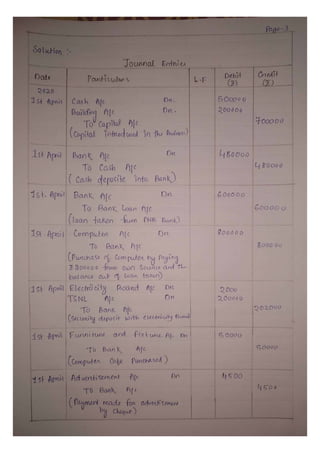 Page-3
Solution :-
Journal Entries
Date Particulars L.F Debit (₹) Credit (₹)
2020
1st April Cash A/c Dr. 500000
Building A/c Dr. 200000
To Capital A/c 700000
(Capital introduced in the Business)
1st April Bank A/c Dr 480000
To Cash A/c 480000
(Cash deposite into Bank)
1st April Bank A/c Dr 600000
To Bank Loan A/c 600000
(loan taken from PNB Bank)
1st April Computer A/c Dr 800000
To Bank A/c 800000
(Purchase of Computer by Paying
from own Source and the
balance out of loan taken)
1st April Electricity Board A/c Dr 2000
TSNL A/c Dr 200000
To Bank A/c 202000
(Security deposit with electricity Board)
1st April Furniture and fixture A/c Dr 50000
To Bank A/c 50000
(Computer Purchased)
1st April Advertisement A/c Dr 4500
To Bank A/c 4500
(Payment made for advertisement
by Cheque)